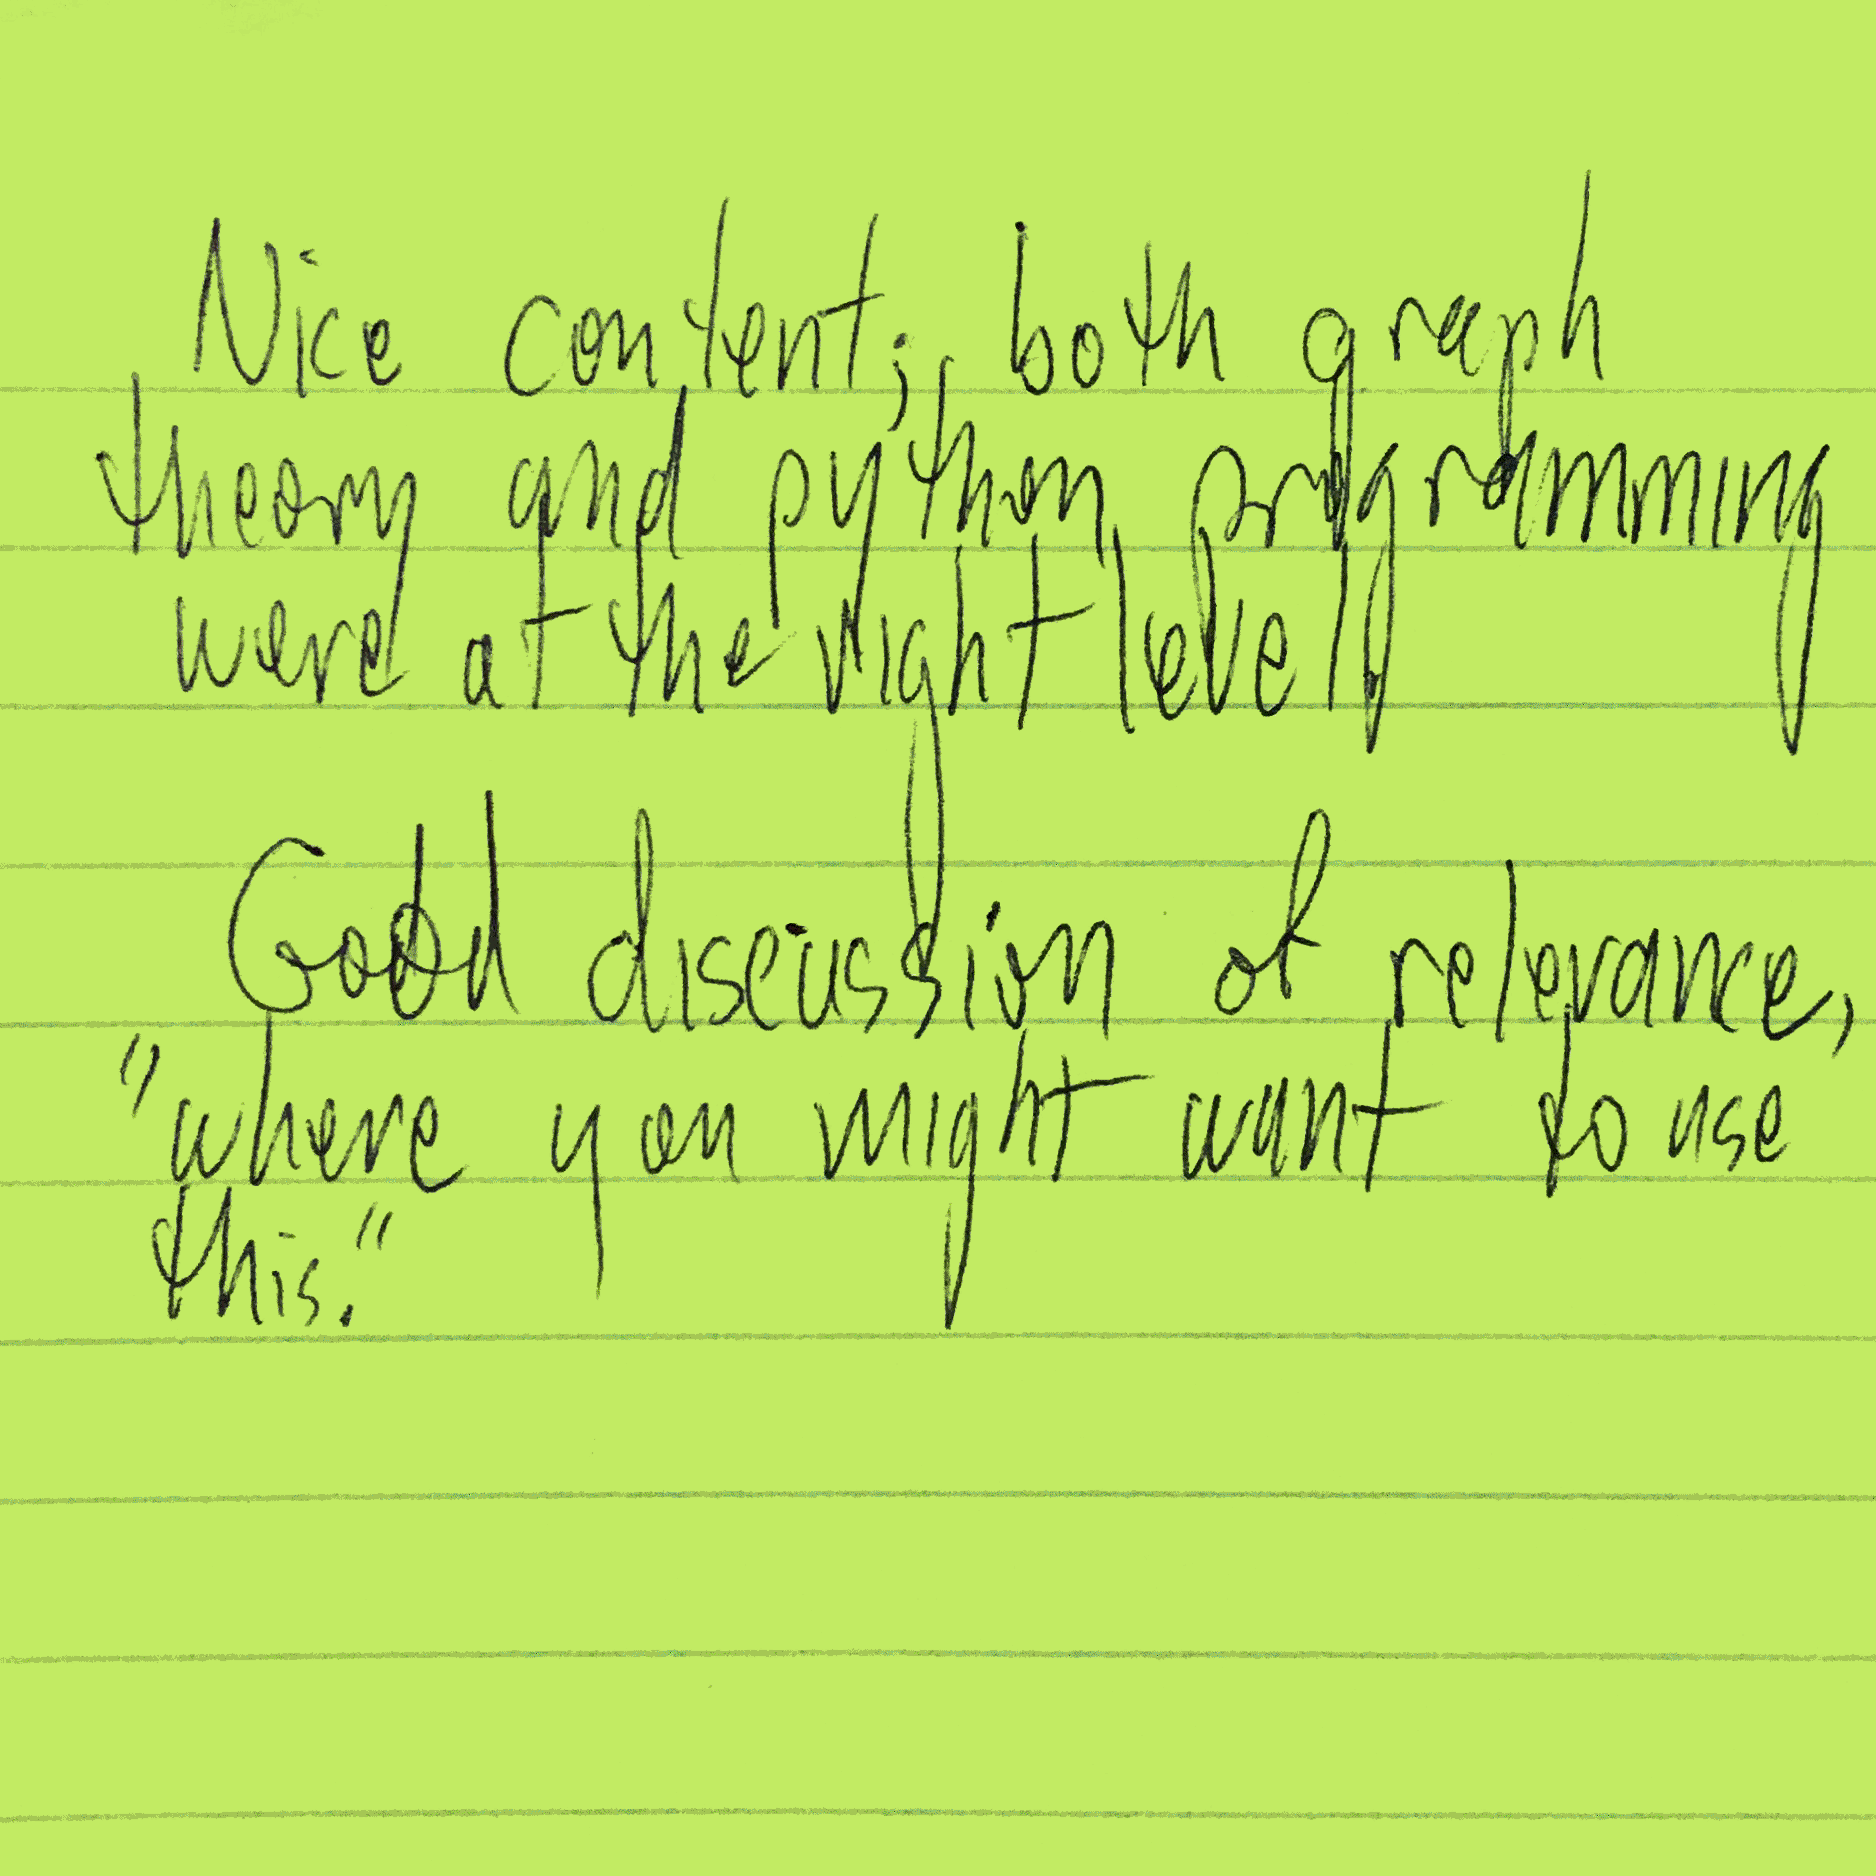 Nice content; both graph
theory and python programming
were at the right level
Good discussion of relevance,
"where you might want to use
this."